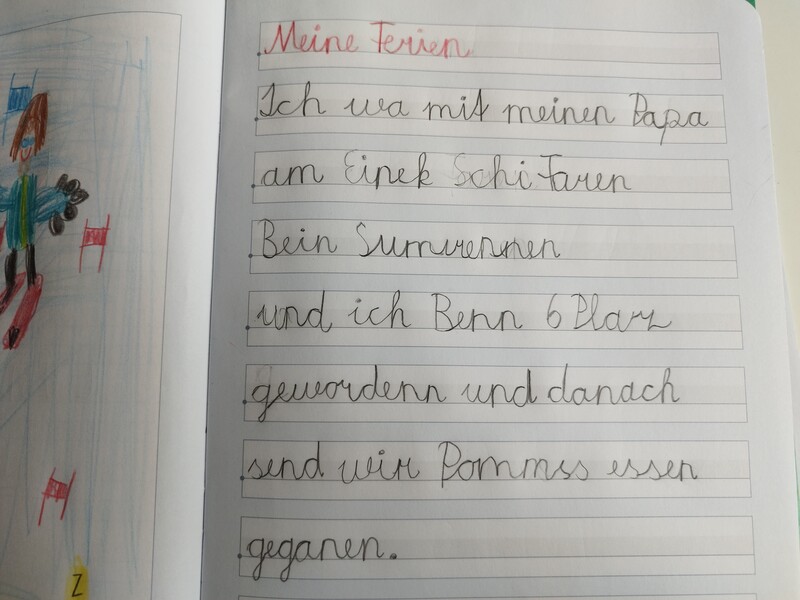 Meine Ferien
Ich wa mit meinen Papa
am Einek Schi Faren
Bein Sumrennen
und ich Benn 6 Plarz
gewordenn und danach
send wir Pommss essen
geganen.
Z